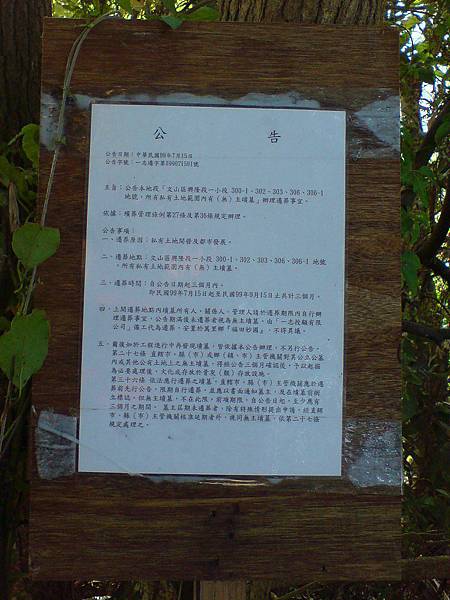 公 告
公告日期：中華民國99年7月15日
公告字號：一志遷字第099071501號
主旨：公告本地段「文山區興隆段一小段 300-1、302、303、306、306-1
地號，所有私有土地範圍內有（無）主墳墓」辦理遷葬事宜。
依據：殯葬管理條例第27條及第36條規定辦理。
公告事項：
一、遷葬原因：私有土地開發及都市發展。
二、遷葬地點：文山區興隆段一小段 300-1、302、303、306、306-1 地號
，所有私有土地範圍內有（無）主墳墓。
三、遷葬時間：自公告日期起三個月內。
即民國99年7月15日起至民國99年9月15日止共計三個月。
四、上開遷葬地點內墳墓所有人、關係人、管理人請於遷葬期限內自行辦
理遷葬事宜，公告期滿後未遷葬者視為無主墳墓。由「一志投顧有限
公司」僱工代為遷葬，安置於萬里鄉「福田妙國」，不得異議。
五、爾後如於工程進行中再發現墳墓，皆依據本公告辦理，不另行公告。
第二十七條 直轄市、縣（市）或鄉（鎮、市）主管機關對其公立公墓
內或其他公有土地上之無主墳墓，得經公告三個月確認後，予以起掘
為必要處理後，火化或存放於骨灰（骸）存放設施。
第三十六條 依法應行遷葬之墳墓，直轄市、縣（市）主管機關應於遷
葬前先行公告，限期自行遷葬，並應以書面通知墓主，及在墳墓前樹
立標誌。但無主墳墓，不在此限。前項期限，自公告日起，至少應有
三個月之期間。 墓主屆期未遷葬者，除有特殊情形提出申請，經直轄
市、縣（市）主管機關核准延期者外，視同無主墳墓，依第二十七條
規定處理之。